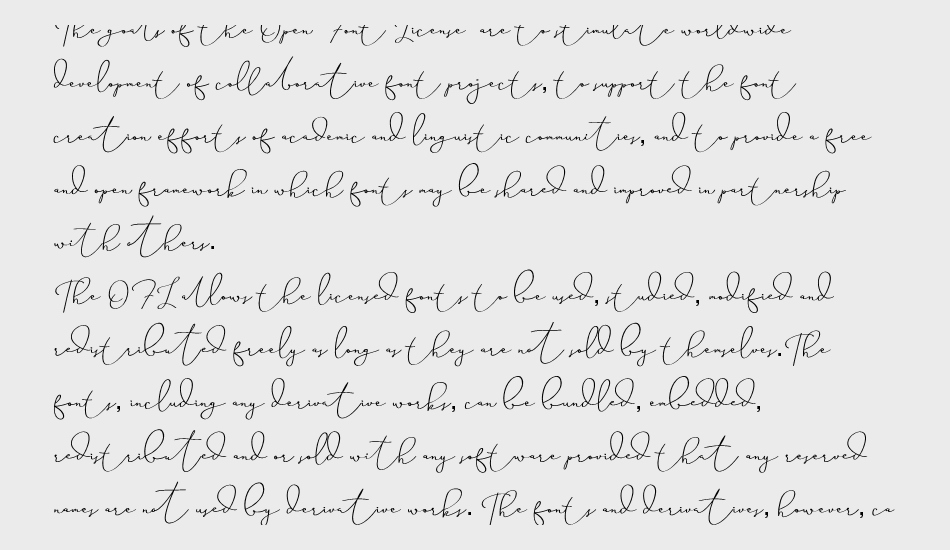 The goals of the Open Font License are to stimulate worldwide
development of collaborative font projects, to support the font
creation efforts of academic and linguistic communities, and to provide a free
and open framework in which fonts may be shared and improved in partnership
with others.
The OFL allows the licensed fonts to be used, studied, modified and
redistributed freely as long as they are not sold by themselves. The
fonts, including any derivative works, can be bundled, embedded,
redistributed and or sold with any software provided that any reserved
names are not used by derivative works. The fonts and derivatives, however, ca